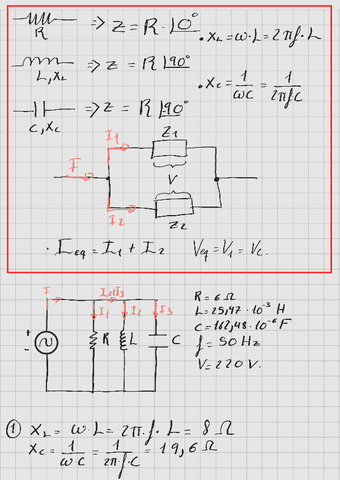 R => Z = R · |0°
· XL = ω · L = 2πf · L
L, XL => Z = R |90°
· XC = 1/ωC = 1/2πfC
C, XC => Z = R |90°
I1 Z1
I V
I2 Z2
· Ieq = I1 + I2 Veq = V1 = VC.
I I2+I3
I1 I2 I3
+ - R L C
R = 6 Ω
L = 25,47 · 10⁻³ H
C = 162,48 · 10⁻⁶ F
f = 50 Hz
V = 220 V.
① XL = ω · L = 2π · f · L = 8 Ω
XC = 1/ωC = 1/2π·f·C = 19,6 Ω